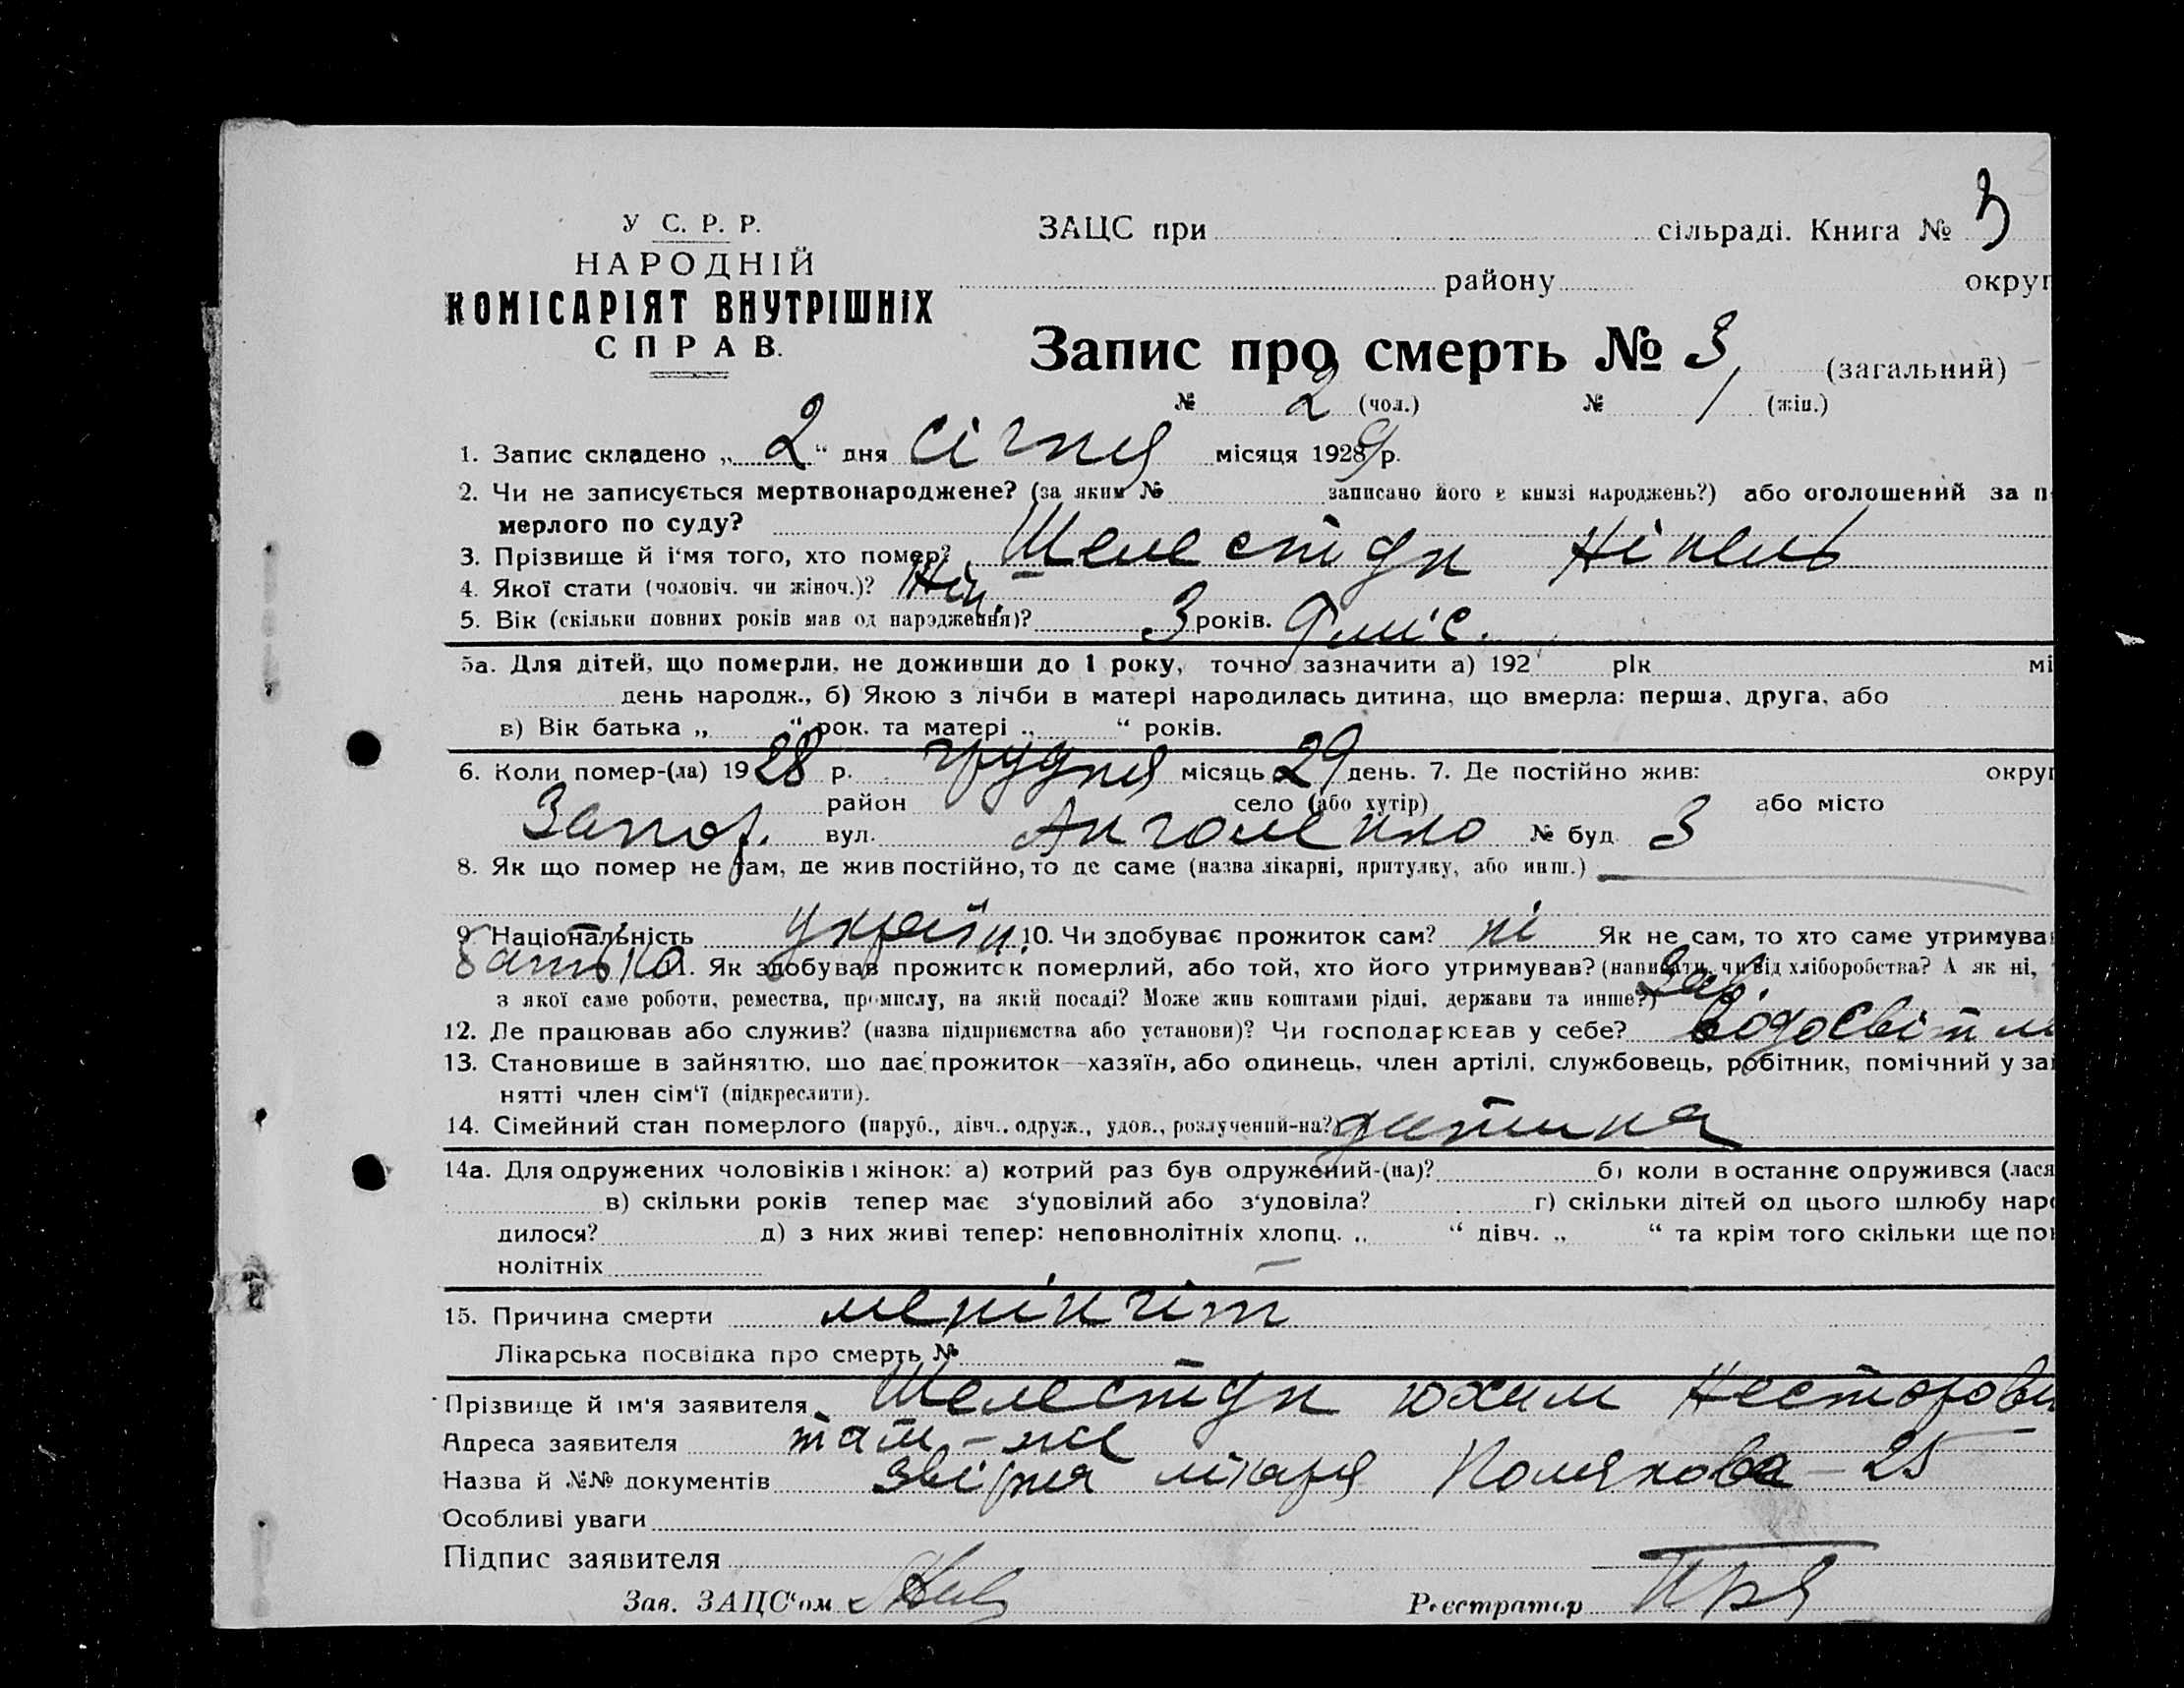 У С. Р. Р.
НАРОДНІЙ
КОМІСАРІЯТ ВНУТРІШНІХ
СПРАВ.
ЗАЦС при сільраді. Книга № 3
району округ
Запис про смерть № 3 (загальний)
№ 2 (чол.) № 1 (жін.)
1. Запис складено „ 2 “ дня січня місяця 1929 р.
2. Чи не записується мертвонароджене? (за яким № записано його в книзі народжень?) або оголошений за п
мерлого по суду?
3. Прізвище й і‘мя того, хто помер? Шелестун Нінель
4. Якої стати (чоловіч. чи жіноч.)? Жін.
5. Вік (скільки повних років мав од народження)? 3 років. 9 міс.
5а. Для дітей, що померли, не доживши до 1 року, точно зазначити а) 192 рік мі
день народж., б) Якою з лічби в матері народилась дитина, що вмерла: перша, друга, або
в) Вік батька „ “ рок. та матері „ “ років.
6. Коли помер-(ла) 1928 р. грудня місяць 29 день. 7. Де постійно жив: округ
район село (або хутір) або місто
Запор. вул. Анголенко № буд. 3
8. Як що помер не там, де жив постійно, то де саме (назва лікарні, притулку, або инш.)
9. Національність україн. 10. Чи здобуває прожиток сам? ні Як не сам, то хто саме утримува
батько 11. Як здобував прожиток померлий, або той, хто його утримував? (написати, чи від хліборобства? А як ні,
з якої саме роботи, ремества, промислу, на якій посаді? Може жив коштами рідні, держави та инше?) Зав.
12. Де працював або служив? (назва підприємства або установи)? Чи господарював у себе? Водосвітл
13. Становище в зайняттю, що дає прожиток—хазяїн, або одинець, член артілі, службовець, робітник, помічний у за
нятті член сім‘ї (підкреслити).
14. Сімейний стан померлого (паруб., дівч., одруж., удов., розлучений-на?) дитина
14а. Для одружених чоловіків і жінок: а) котрий раз був одружений-(на)? б) коли в останнє одружився (лася
в) скільки років тепер має з‘удовілий або з‘удовіла? г) скільки дітей од цього шлюбу наро
дилося? д) з них живі тепер: неповнолітніх хлопц. „ “ дівч. „ “ та крім того скільки ще по
нолітніх —
15. Причина смерти менінгіт
Лікарська посвідка про смерть №
Прізвище й ім'я заявителя Шелестун Юхим Несторови
Адреса заявителя там-же
Назва й №№ документів звірня лікаря Полякова - 25
Особливі уваги
Підпис заявителя
Зав. ЗАЦС‘ом
Реєстратор